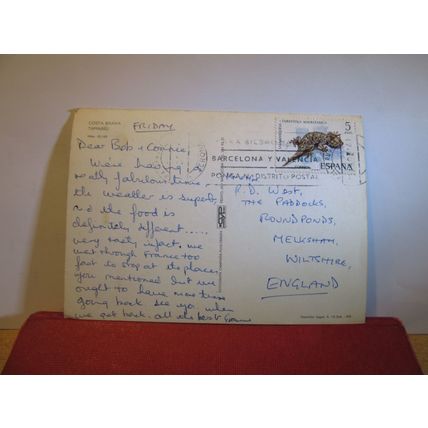 COSTA BRAVA
FRIDAY
Dear Bob & Connie,
We're having a
really fabulous time,
the weather is superb,
and the food is
definitely different.....
very tasty infact, we
went through France too
fast to stop at the places
you mentioned but we
ought to have more time
going back. See you when
we get back. All the best
BARCELONA Y VALENCIA
PONGA N. DISTRITO POSTAL
5
ESPAÑA
R.D. WEST,
THE PADDOCKS,
ROUNDPONDS,
MELKSHAM,
WILTSHIRE,
ENGLAND